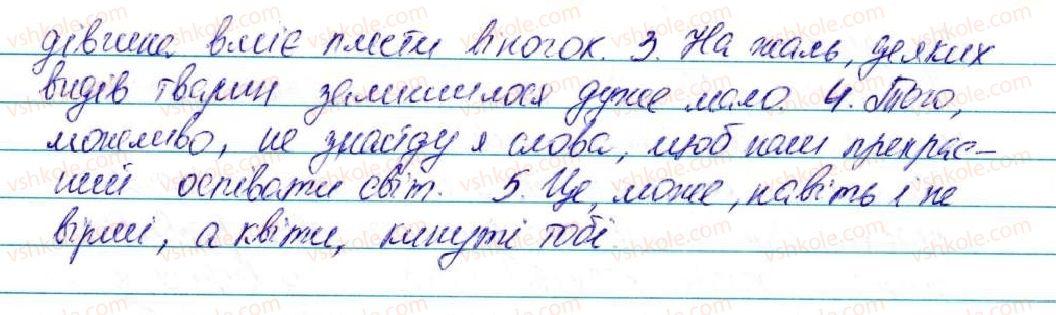 дівчина вміє плести віночок. 3. На жаль, деяких
видів тварин залишилося дуже мало. 4. Того,
можливо, не знайду я слова, щоб наш прекрас-
ний оспівати світ. 5. Це, може, навіть і не
вірші, а квіти, кинуті тобі.